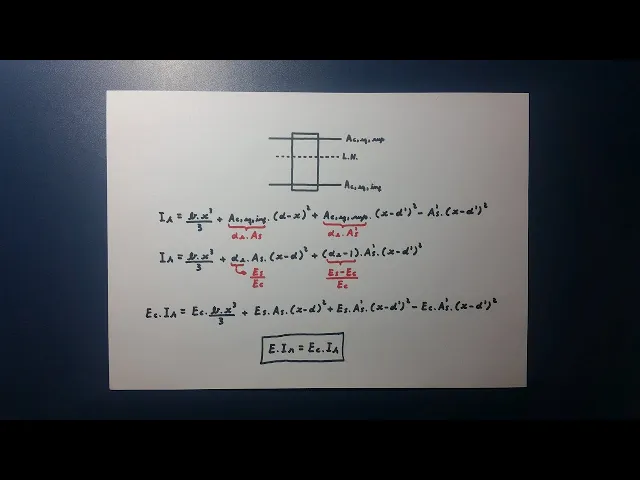 Ac,eq,sup
L.N.
Ac,eq,inf
I_Δ = b.x³/3 + Ac,eq,inf.(d-x)² + Ac,eq,sup.(x-d')² - As'.(x-d')²
α_Δ.As α_Δ.As'
I_Δ = b.x³/3 + α_Δ.As.(x-d)² + (α_Δ-1).As'.(x-d')²
Es/Ec Es-Ec/Ec
Ec.I_Δ = Ec.b.x³/3 + Es.As.(x-d)² + Es.As'.(x-d')² - Ec.As'.(x-d')²
E.I_Δ = Ec.I_Δ